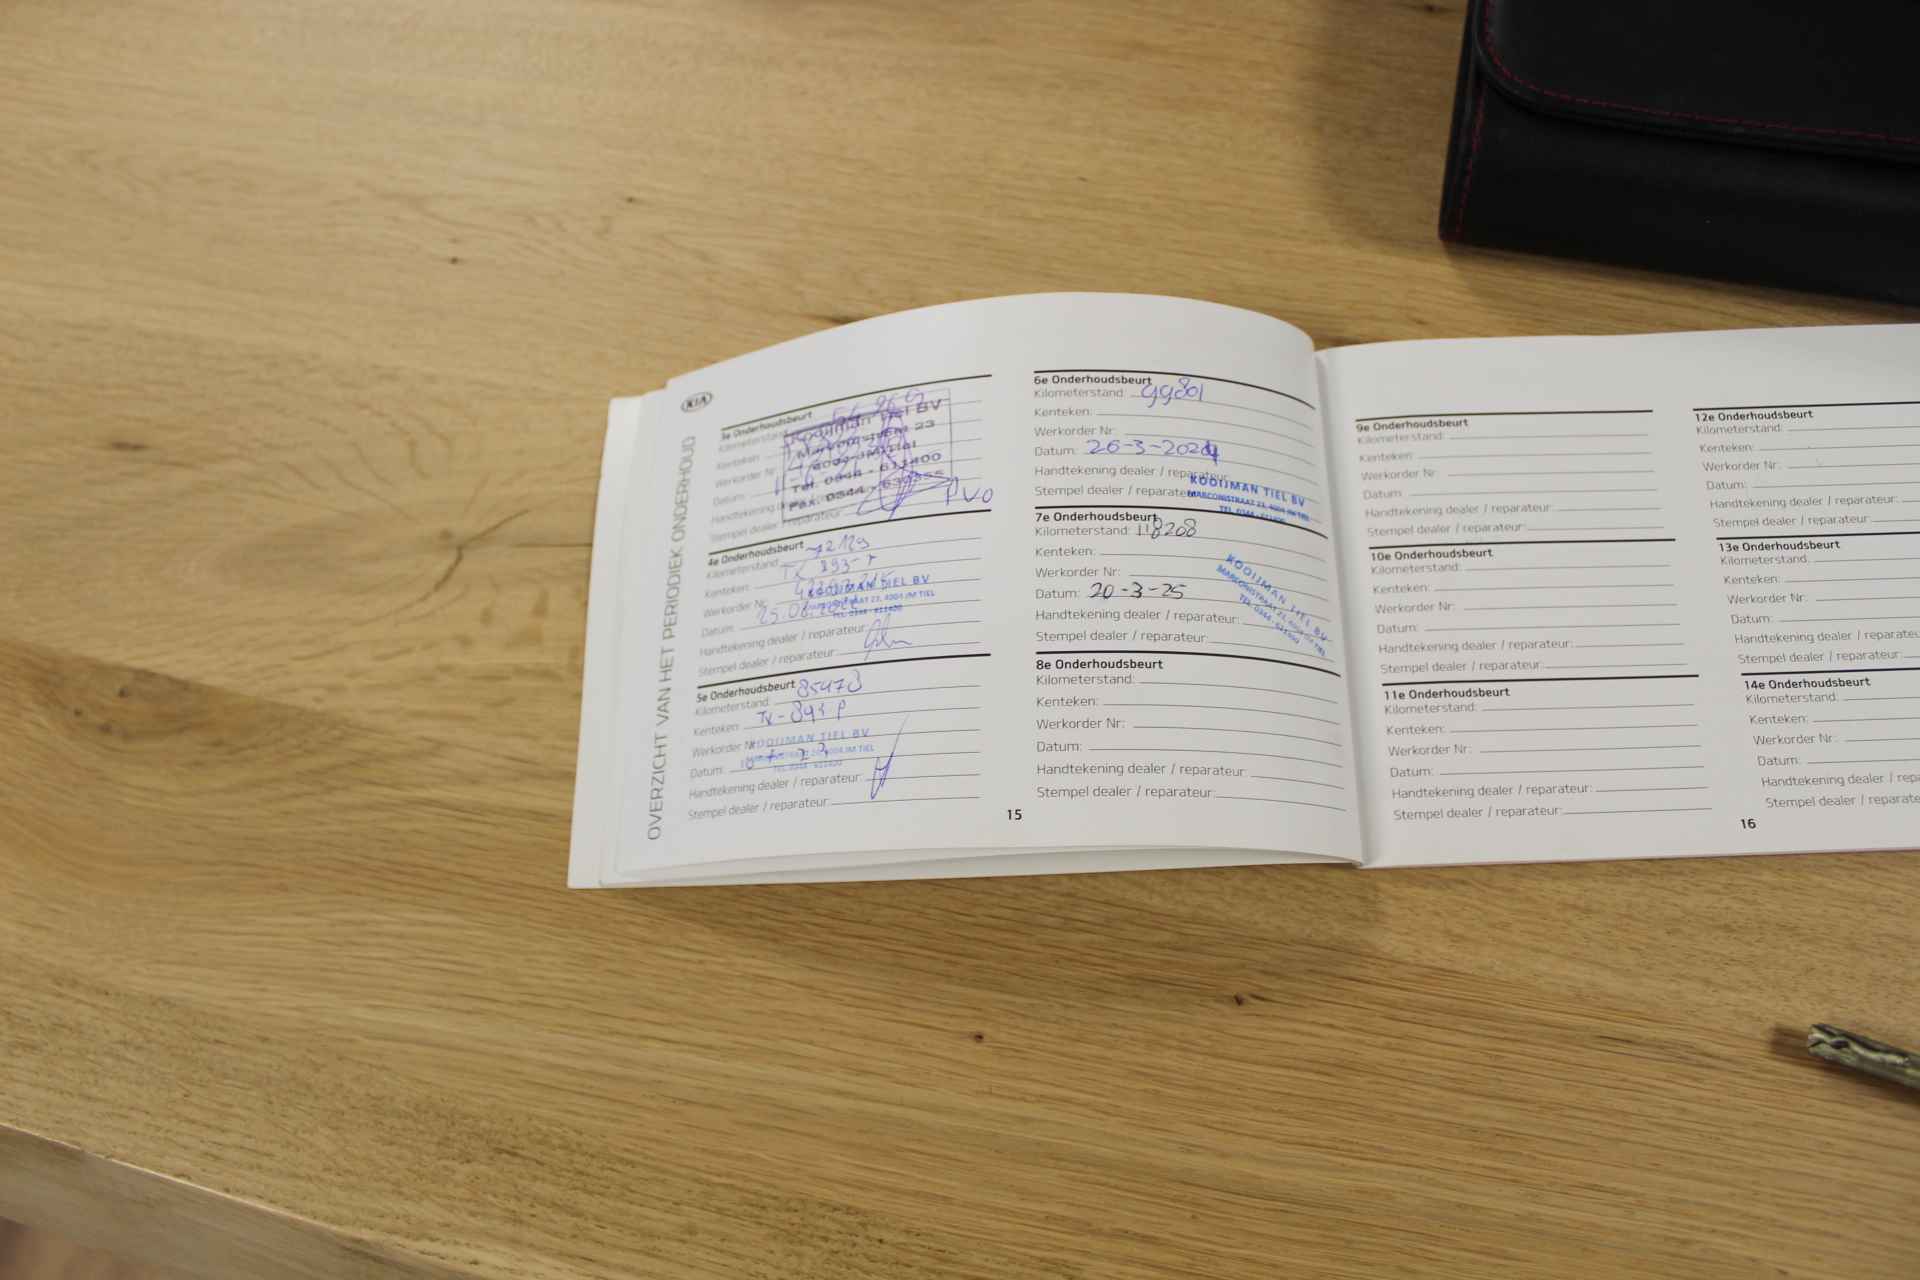 KIA
OVERZICHT VAN HET PERIODIEK ONDERHOUD
3e Onderhoudsbeurt
Kilometerstand:
Kenteken:
Werkorder Nr:
Datum:
Handtekening
Stempel dealer / reparateur:
Kooijman Tiel BV
Marconistraat 23
4004 JM Tiel
Tel. 0344 - 611400
Fax. 0344 -
PVO
4e Onderhoudsbeurt
Kilometerstand: 72129
Kenteken:
Werkorder Nr:
Datum:
Handtekening dealer / reparateur:
Stempel dealer / reparateur:
KOOIJMAN TIEL BV
MARCONISTRAAT 23, 4004 JM TIEL
TEL. 0344 - 611400
5e Onderhoudsbeurt
Kilometerstand: 85478
Kenteken:
Werkorder Nr:
Datum:
Handtekening dealer / reparateur:
Stempel dealer / reparateur:
KOOIJMAN TIEL BV
MARCONISTRAAT 23, 4004 JM TIEL
TEL. 0344 - 611400
6e Onderhoudsbeurt
Kilometerstand: 99801
Kenteken:
Werkorder Nr:
Datum: 26-3-2024
Handtekening dealer / reparateur:
Stempel dealer / reparateur:
KOOIJMAN TIEL BV
MARCONISTRAAT 23, 4004 JM TIEL
TEL. 0344 - 611400
7e Onderhoudsbeurt
Kilometerstand: 118208
Kenteken:
Werkorder Nr:
Datum: 20-3-25
Handtekening dealer / reparateur:
Stempel dealer / reparateur:
KOOIJMAN TIEL BV
MARCONISTRAAT 23, 4004 JM TIEL
TEL. 0344 - 611400
8e Onderhoudsbeurt
Kilometerstand:
Kenteken:
Werkorder Nr:
Datum:
Handtekening dealer / reparateur:
Stempel dealer / reparateur:
15
9e Onderhoudsbeurt
Kilometerstand:
Kenteken:
Werkorder Nr:
Datum:
Handtekening dealer / reparateur:
Stempel dealer / reparateur:
10e Onderhoudsbeurt
Kilometerstand:
Kenteken:
Werkorder Nr:
Datum:
Handtekening dealer / reparateur:
Stempel dealer / reparateur:
11e Onderhoudsbeurt
Kilometerstand:
Kenteken:
Werkorder Nr:
Datum:
Handtekening dealer / reparateur:
Stempel dealer / reparateur:
12e Onderhoudsbeurt
Kilometerstand:
Kenteken:
Werkorder Nr:
Datum:
Handtekening dealer / reparateur:
Stempel dealer / reparateur:
13e Onderhoudsbeurt
Kilometerstand:
Kenteken:
Werkorder Nr:
Datum:
Handtekening dealer / reparateu
Stempel dealer / reparateur:
14e Onderhoudsbeurt
Kilometerstand:
Kenteken:
Werkorder Nr:
Datum:
Handtekening dealer / repa
Stempel dealer / reparate
16